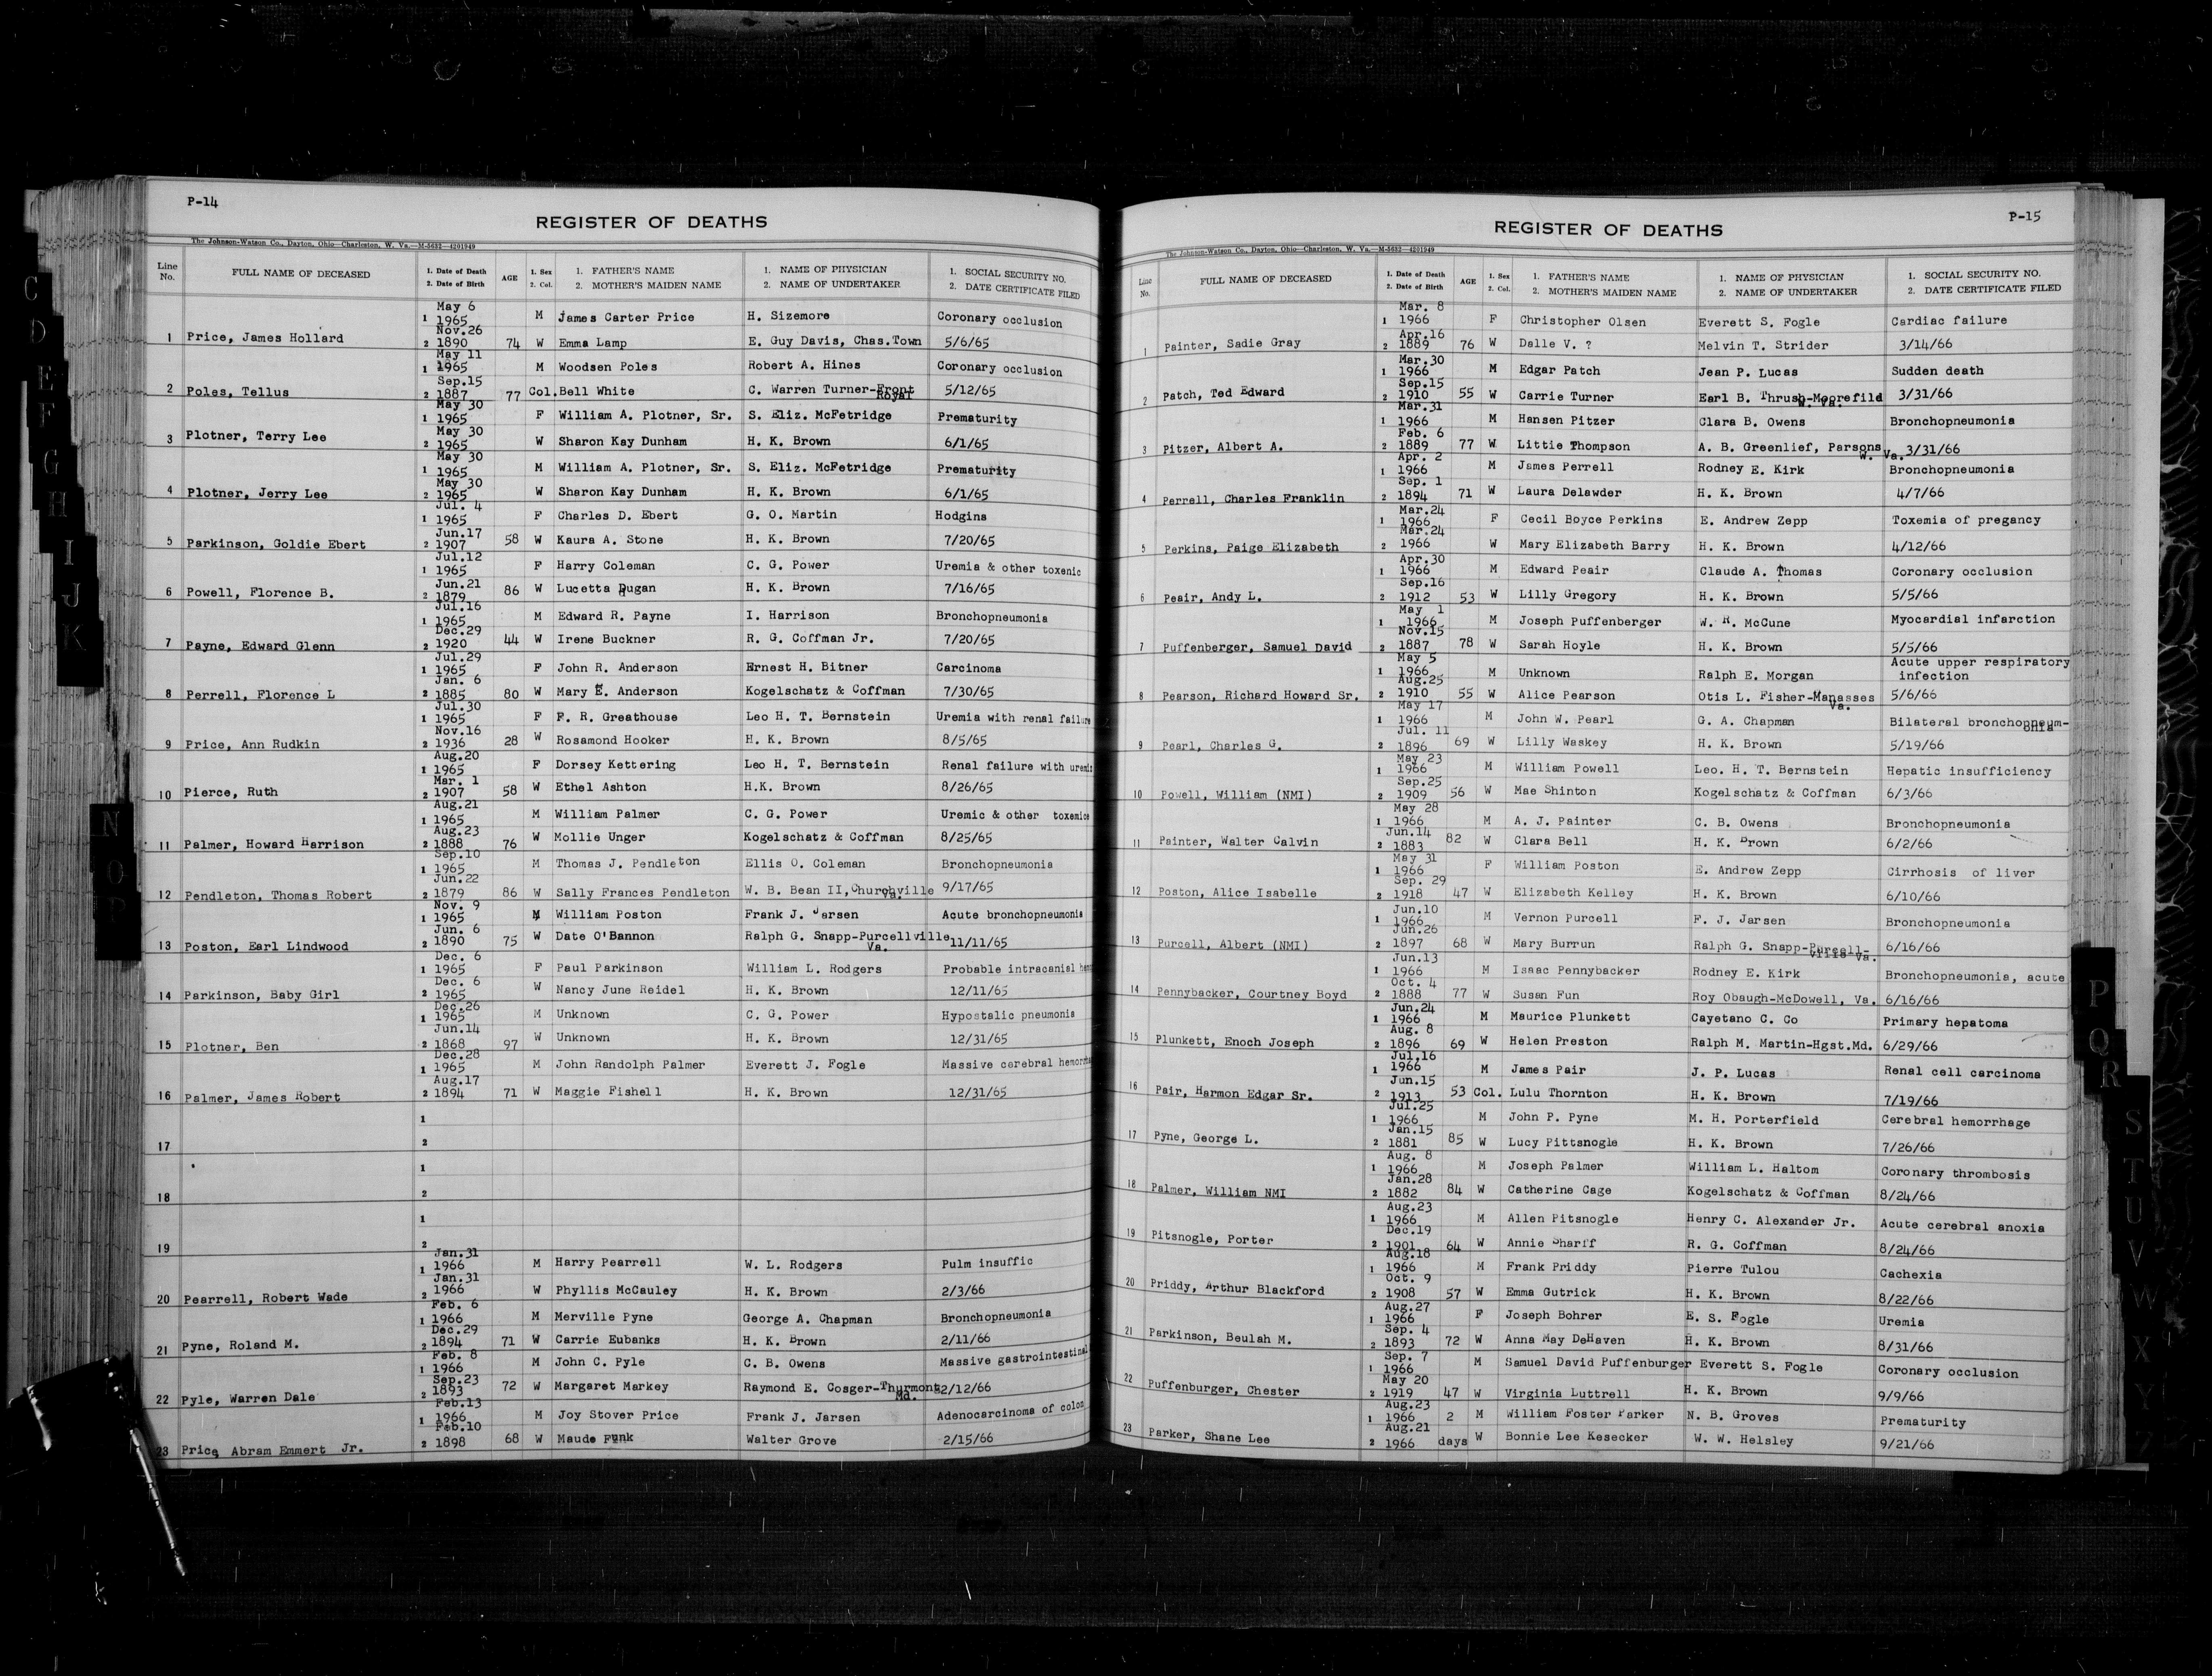 P-14
REGISTER OF DEATHS
The Johnson-Watson Co., Dayton, Ohio—Charleston, W. Va.—M-5632—4201949
Line No. FULL NAME OF DECEASED 1. Date of Death 2. Date of Birth AGE 1. Sex 2. Col. 1. FATHER'S NAME 2. MOTHER'S MAIDEN NAME 1. NAME OF PHYSICIAN 2. NAME OF UNDERTAKER 1. SOCIAL SECURITY NO. 2. DATE CERTIFICATE FILED
1 May 6 1965 M James Carter Price H. Sizemore Coronary occlusion
1 Price, James Hollard 2 Nov.26 1890 74 W Emma Lamp E. Guy Davis, Chas.Town 5/6/65
1 May 11 1965 M Woodsen Poles Robert A. Hines Coronary occlusion
2 Poles, Tellus 2 Sep.15 1887 77 Col. Bell White C. Warren Turner-Front Royal 5/12/65
1 May 30 1965 F William A. Plotner, Sr. S. Eliz. McFetridge Prematurity
3 Plotner, Terry Lee 2 May 30 1965 W Sharon Kay Dunham H. K. Brown 6/1/65
1 May 30 1965 M William A. Plotner, Sr. S. Eliz. McFetridge Prematurity
4 Plotner, Jerry Lee 2 May 30 1965 W Sharon Kay Dunham H. K. Brown 6/1/65
1 Jul. 4 1965 F Charles D. Ebert G. O. Martin Hodgins
5 Parkinson, Goldie Ebert 2 Jun.17 1907 58 W Kaura A. Stone H. K. Brown 7/20/65
1 Jul.12 1965 F Harry Coleman C. G. Power Uremia & other toxenic
6 Powell, Florence B. 2 Jun.21 1879 86 W Lucetta Dugan H. K. Brown 7/16/65
1 Jul.16 1965 M Edward R. Payne I. Harrison Bronchopneumonia
7 Payne, Edward Glenn 2 Dec.29 1920 44 W Irene Buckner R. G. Coffman Jr. 7/20/65
1 Jul.29 1965 F John R. Anderson Ernest H. Bitner Carcinoma
8 Perrell, Florence L 2 Jan. 6 1885 80 W Mary E. Anderson Kogelschatz & Coffman 7/30/65
1 Jul.30 1965 F F. R. Greathouse Leo H. T. Bernstein Uremia with renal failure
9 Price, Ann Rudkin 2 Nov.16 1936 28 W Rosamond Hooker H. K. Brown 8/5/65
1 Aug.20 1965 F Dorsey Kettering Leo H. T. Bernstein Renal failure with uremia
10 Pierce, Ruth 2 Mar. 1 1907 58 W Ethel Ashton H.K. Brown 8/26/65
1 Aug.21 1965 M William Palmer C. G. Power Uremic & other toxemics
11 Palmer, Howard Harrison 2 Aug.23 1888 76 W Mollie Unger Kogelschatz & Coffman 8/25/65
1 Sep.10 1965 M Thomas J. Pendleton Ellis O. Coleman Bronchopneumonia
12 Pendleton, Thomas Robert 2 Jun.22 1879 86 W Sally Frances Pendleton W. B. Bean II, Churchville Va. 9/17/65
1 Nov. 9 1965 M William Poston Frank J. Jarsen Acute bronchopneumonia
13 Poston, Earl Lindwood 2 Jun. 6 1890 75 W Date O'Bannon Ralph G. Snapp-Purcellville Va. 11/11/65
1 Dec. 6 1965 F Paul Parkinson William L. Rodgers Probable intracanial
14 Parkinson, Baby Girl 2 Dec. 6 1965 W Nancy June Reidel H. K. Brown 12/11/65
1 Dec.26 1965 M Unknown C. G. Power Hypostalic pneumonia
15 Plotner, Ben 2 Jun.14 1868 97 W Unknown H. K. Brown 12/31/65
1 Dec.28 1965 M John Randolph Palmer Everett J. Fogle Massive cerebral
16 Palmer, James Robert 2 Aug.17 1894 71 W Maggie Fishell H. K. Brown 12/31/65
1
17 2
1
18 2
1
19 2
1 Jan.31 1966 M Harry Pearrell W. L. Rodgers Pulm insuffic
20 Pearrell, Robert Wade 2 Jan.31 1966 W Phyllis McCauley H. K. Brown 2/3/66
1 Feb. 6 1966 M Merville Pyne George A. Chapman Bronchopneumonia
21 Pyne, Roland M. 2 Dec.29 1894 71 W Carrie Eubanks H. K. Brown 2/11/66
1 Feb. 8 1966 M John C. Pyle C. B. Owens Massive gastrointestinal
22 Pyle, Warren Dale 2 Sep.23 1893 72 W Margaret Markey Raymond E. Cosger-Thurmont Md. 2/12/66
1 Feb.13 1966 M Joy Stover Price Frank J. Jarsen Adenocarcinoma of colon
23 Price, Abram Emmert Jr. 2 Feb.10 1898 68 W Maude Funk Walter Grove 2/15/66
P-15
REGISTER OF DEATHS
The Johnson-Watson Co., Dayton, Ohio—Charleston, W. Va.—M-5632—4201949
Line No. FULL NAME OF DECEASED 1. Date of Death 2. Date of Birth AGE 1. Sex 2. Col. 1. FATHER'S NAME 2. MOTHER'S MAIDEN NAME 1. NAME OF PHYSICIAN 2. NAME OF UNDERTAKER 1. SOCIAL SECURITY NO. 2. DATE CERTIFICATE FILED
1 Mar. 8 1966 F Christopher Olsen Everett S. Fogle Cardiac failure
1 Painter, Sadie Gray 2 Apr.16 1889 76 W Dalle V. ? Melvin T. Strider 3/14/66
1 Mar.30 1966 M Edgar Patch Jean P. Lucas Sudden death
2 Patch, Ted Edward 2 Sep.15 1910 55 W Carrie Turner Earl B. Thrush-Moorefild W. Va. 3/31/66
1 Mar.31 1966 M Hansen Pitzer Clara B. Owens Bronchopneumonia
3 Pitzer, Albert A. 2 Feb. 6 1889 77 W Littie Thompson A. B. Greenlief, Parsons W. Va. 3/31/66
1 Apr. 2 1966 M James Perrell Rodney E. Kirk Bronchopneumonia
4 Perrell, Charles Franklin 2 Sep. 1 1894 71 W Laura Delawder H. K. Brown 4/7/66
1 Mar.24 1966 F Cecil Boyce Perkins E. Andrew Zepp Toxemia of pregancy
5 Perkins, Paige Elizabeth 2 Mar.24 1966 W Mary Elizabeth Barry H. K. Brown 4/12/66
1 Apr.30 1966 M Edward Peair Claude A. Thomas Coronary occlusion
6 Peair, Andy L. 2 Sep.16 1912 53 W Lilly Gregory H. K. Brown 5/5/66
1 May 1 1966 M Joseph Puffenberger W. R. McCune Myocardial infarction
7 Puffenberger, Samuel David 2 Nov.15 1887 78 W Sarah Hoyle H. K. Brown 5/5/66
1 May 5 1966 M Unknown Ralph E. Morgan Acute upper respiratory infection
8 Pearson, Richard Howard Sr. 2 Aug.25 1910 55 W Alice Pearson Otis L. Fisher-Manasses Va. 5/6/66
1 May 17 1966 M John W. Pearl G. A. Chapman Bilateral bronchopneum-onia
9 Pearl, Charles G. 2 Jul. 11 1896 69 W Lilly Waskey H. K. Brown 5/19/66
1 May 23 1966 M William Powell Leo. H. T. Bernstein Hepatic insufficiency
10 Powell, William (NMI) 2 Sep.25 1909 56 W Mae Shinton Kogelschatz & Coffman 6/3/66
1 May 28 1966 M A. J. Painter C. B. Owens Bronchopneumonia
11 Painter, Walter Calvin 2 Jun.14 1883 82 W Clara Bell H. K. Brown 6/2/66
1 May 31 1966 F William Poston E. Andrew Zepp Cirrhosis of liver
12 Poston, Alice Isabelle 2 Sep. 29 1918 47 W Elizabeth Kelley H. K. Brown 6/10/66
1 Jun.10 1966 M Vernon Purcell F. J. Jarsen Bronchopneumonia
13 Purcell, Albert (NMI) 2 Jun.26 1897 68 W Mary Burrun Ralph G. Snapp-Purcell-ville Va. 6/16/66
1 Jun.13 1966 M Isaac Pennybacker Rodney E. Kirk Bronchopneumonia, acute
14 Pennybacker, Courtney Boyd 2 Oct. 4 1888 77 W Susan Fun Roy Obaugh-McDowell, Va. 6/16/66
1 Jun.24 1966 M Maurice Plunkett Cayetano C. Co Primary hepatoma
15 Plunkett, Enoch Joseph 2 Aug. 8 1896 69 W Helen Preston Ralph M. Martin-Hgst.Md. 6/29/66
1 Jul.16 1966 M James Pair J. P. Lucas Renal cell carcinoma
16 Pair, Harmon Edgar Sr. 2 Jun.15 1913 53 Col. Lulu Thornton H. K. Brown 7/19/66
1 Jul.25 1966 M John P. Pyne M. H. Porterfield Cerebral hemorrhage
17 Pyne, George L. 2 Jan.15 1881 85 W Lucy Pittsnogle H. K. Brown 7/26/66
1 Aug. 8 1966 M Joseph Palmer William L. Haltom Coronary thrombosis
18 Palmer, William NMI 2 Jan.28 1882 84 W Catherine Cage Kogelschatz & Coffman 8/24/66
1 Aug.23 1966 M Allen Pitsnogle Henry C. Alexander Jr. Acute cerebral anoxia
19 Pitsnogle, Porter 2 Dec.19 1901 64 W Annie Sharff R. G. Coffman 8/24/66
1 Aug.18 1966 M Frank Priddy Pierre Tulou Cachexia
20 Priddy, Arthur Blackford 2 Oct. 9 1908 57 W Emma Gutrick H. K. Brown 8/22/66
1 Aug.27 1966 F Joseph Bohrer E. S. Fogle Uremia
21 Parkinson, Beulah M. 2 Sep. 4 1893 72 W Anna May DeHaven H. K. Brown 8/31/66
1 Sep. 7 1966 M Samuel David Puffenburger Everett S. Fogle Coronary occlusion
22 Puffenburger, Chester 2 May 20 1919 47 W Virginia Luttrell H. K. Brown 9/9/66
1 Aug.23 1966 2 M William Foster Parker N. B. Groves Prematurity
23 Parker, Shane Lee 2 Aug.21 1966 days W Bonnie Lee Kesecker W. W. Helsley 9/21/66
C
D
E
F
G
H
I
J
K
N
O
P
P
Q
R
S
T
U
V
W
X
Y